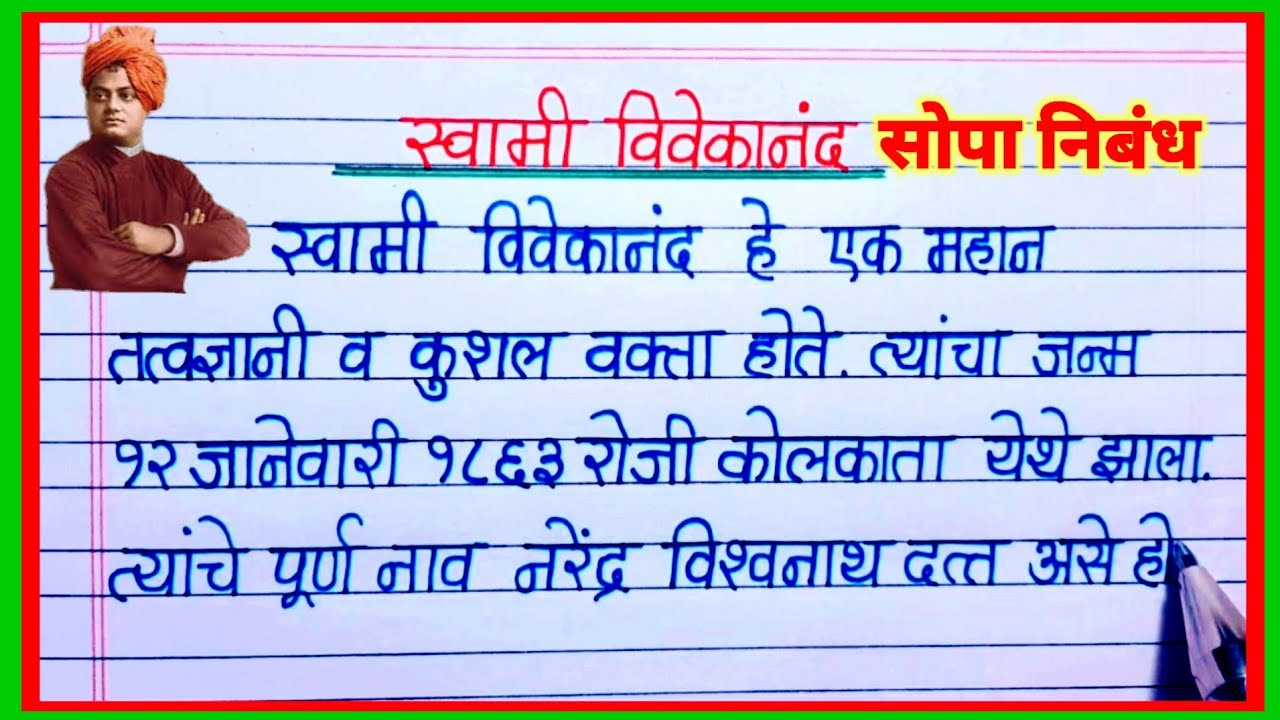 स्वामी विवेकानंद सोपा निबंध
स्वामी विवेकानंद हे एक महान
तत्वज्ञानी व कुशल वक्ता होते. त्यांचा जन्म
१२ जानेवारी १८६३ रोजी कोलकाता येथे झाला.
त्यांचे पूर्ण नाव नरेंद्र विश्वनाथ दत्त असे हो